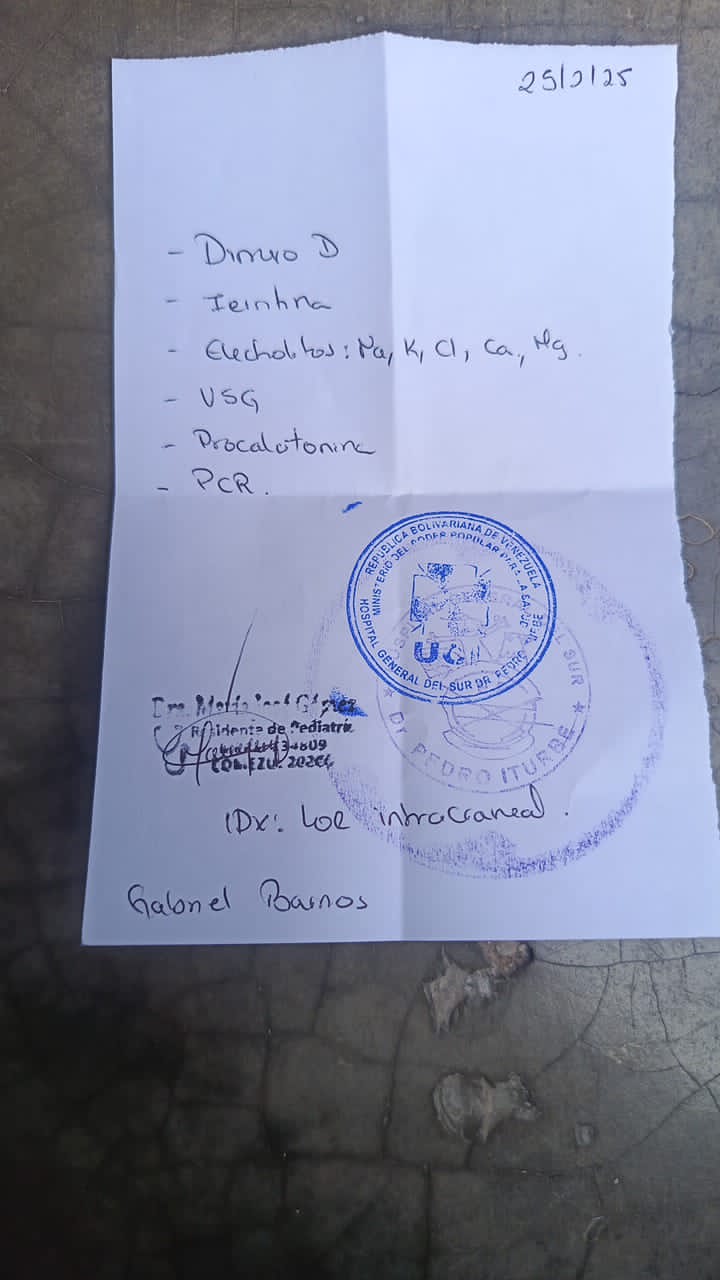 25/2/25
- Dimero D
- Ferritina
- Electrolitos: Na, K, Cl, Ca, Mg.
- VSG
- Procalcitonina
- PCR.
REPUBLICA BOLIVARIANA DE VENEZUELA
MINISTERIO DEL PODER POPULAR PARA LA SALUD
HOSPITAL GENERAL DEL SUR DR. PEDRO ITURBE
SUR
Dr. PEDRO ITURBE
Dra. María José
Residente de Pediatría
34809
COMEZU.
IDx: LOE intracraneal.
Gabriel Barrios